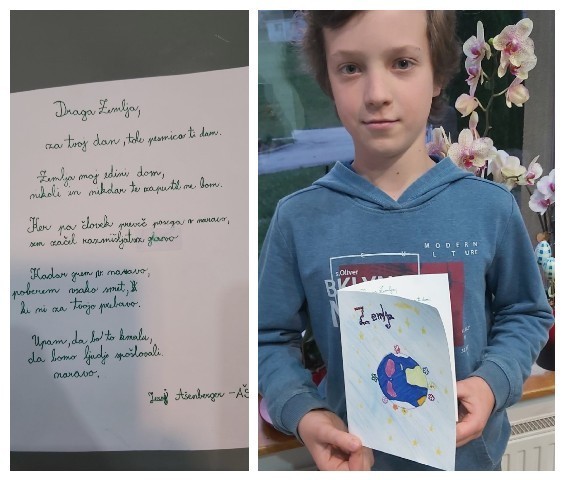 Draga Zemlja,
za tvoj dan, tole pesmico ti dam.
Zemlja moj edini dom,
nikoli in nikdar te zapustil ne bom.
Ker pa človek preveč posega v naravo,
sem začel razmišljat z glavo
Kadar grem v naravo,
poberem vsako smet,
ki ni za tvojo prebavo.
Upam, da bo to kmalu,
da bomo ljudje spoštovali
naravo.
Jozej Ašenberger - AŠ
MODERN
CULTURE
s.Oliver
Zemlja